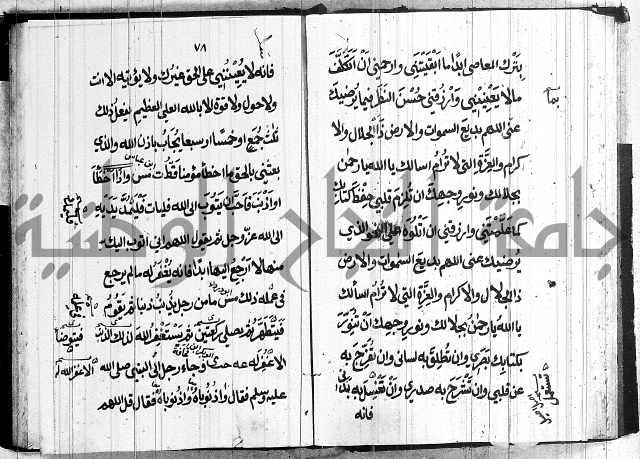 بترك المعاصي ابدا ما ابقيتني وارحمني ان اتكلف
ما لا يعنيني وارزقني حسن النظر فيما يرضيك
عني اللهم بديع السموات والارض ذا الجلال والا
كرام والعزة التي لا ترام اسالك يا الله يا رحمن
بجلالك ونور وجهك ان تلزم قلبي حفظ كتابك
كما علمتني وارزقني ان اتلوه على النحو الذي
يرضيك عني اللهم بديع السموات والارض
ذا الجلال والاكرام والعزة التي لا ترام اسالك
يا الله يا رحمن بجلالك ونور وجهك ان تنور
بكتابك بصري وان تطلق به لساني وان تفرج به
عن قلبي وان تشرح به صدري وان تغسل به بدني
فانه
٧٨
فانه لا يعينني على الحق غيرك ولا يؤتيه الا انت
ولا حول ولا قوة الا بالله العلي العظيم يفعل ذلك
ثلث جمع او خمسا او سبعا يجاب باذن الله والذي
بعثني بالحق ما اخطأ مؤمنا قط ت مس واذا اخطأ
او اذنب فاحب ان يتوب الى الله فليات فليمد يديه
الى الله عز وجل ثم يقول اللهم اني اتوب اليك
منها لا ارجع اليها ابدا فانه يغفر له ما لم يرجع
في عمله ذلك مس ما من رجل يذنب ذنبا ثم يقوم
فيتطهر ثم يصلي ركعتين ثم يستغفر الله لذلك الذنب
الا غفر له عه حب وجاء رجل الى النبي صلى الله
عليه وسلم فقال واذنوباه واذنوباه فقال قل اللهم
فيتوضأ
الا غفر الله له
جامعة النجاح الوطنية